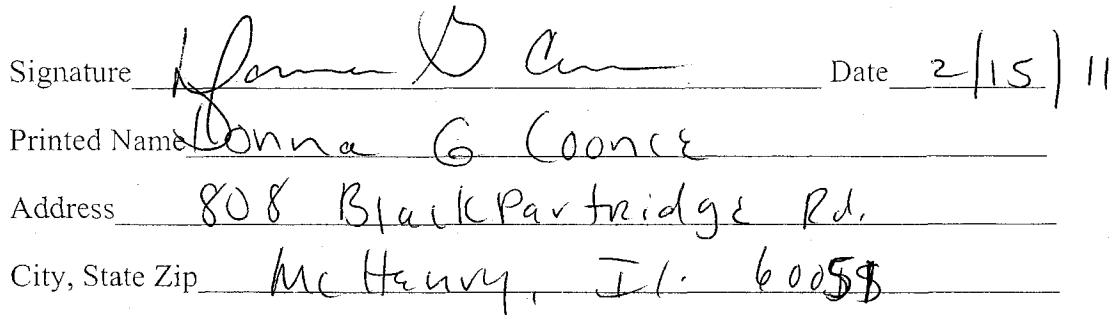 Signature Donna G C Date 2/15/11
Printed Name Donna G Coonce
Address 808 Black Partridge Rd.
City, State Zip McHenry, Il. 60051